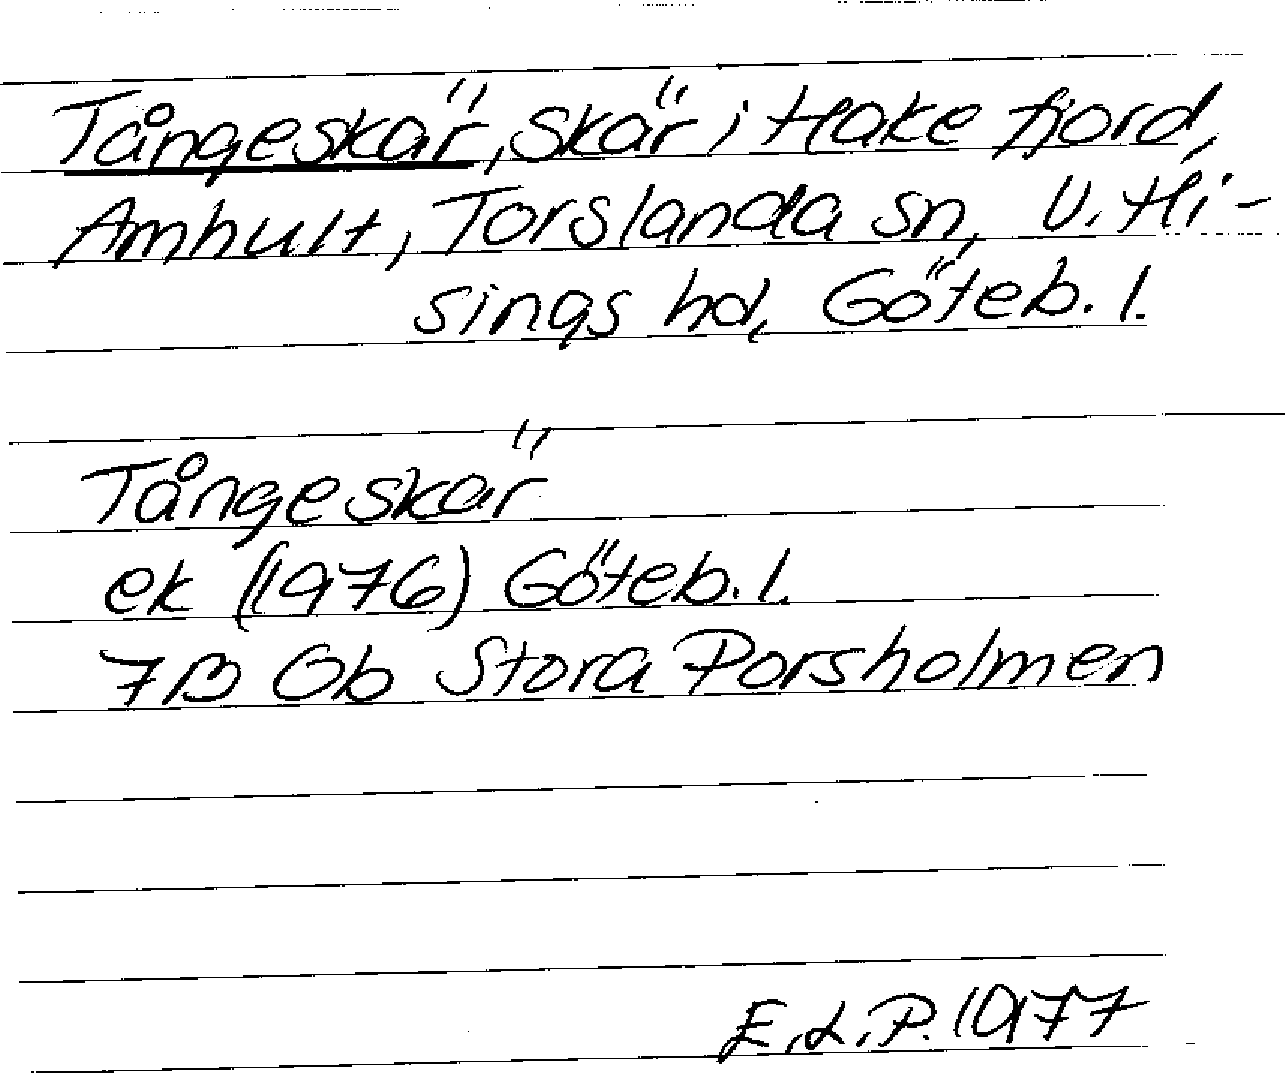 Tångeskär, skär i Hake fjord,
Amhult, Torslanda sn, V. Hi-
sings hd, Göteb. l.
Tångeskär
ek (1976) Göteb. l.
7B 0b Stora Porsholmen
E.L.P. 1977